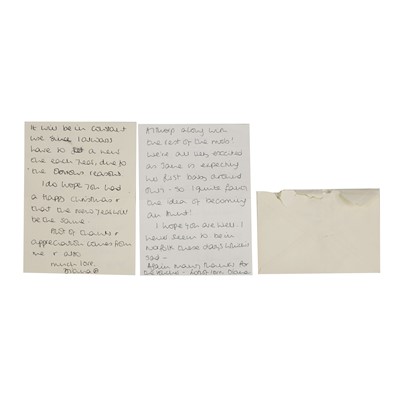 It will be in constant
use since I always
have to a new
one each year, due to
the obvious reasons
I do hope you had
a happy Christmas &
that the new year will
be the same.
Lots of thanks &
appreciation comes from
me & also
much love.
Diana
Althorp along with
the rest of the mob!
We're all very excited
as Jane is expecting
her first baby around
so I quite fancy
the idea of becoming
an Aunt!
I hope you are well. I
have seem to be in
Norfolk these days
Dad -
Again Many thanks for
the - lots of love, Diana